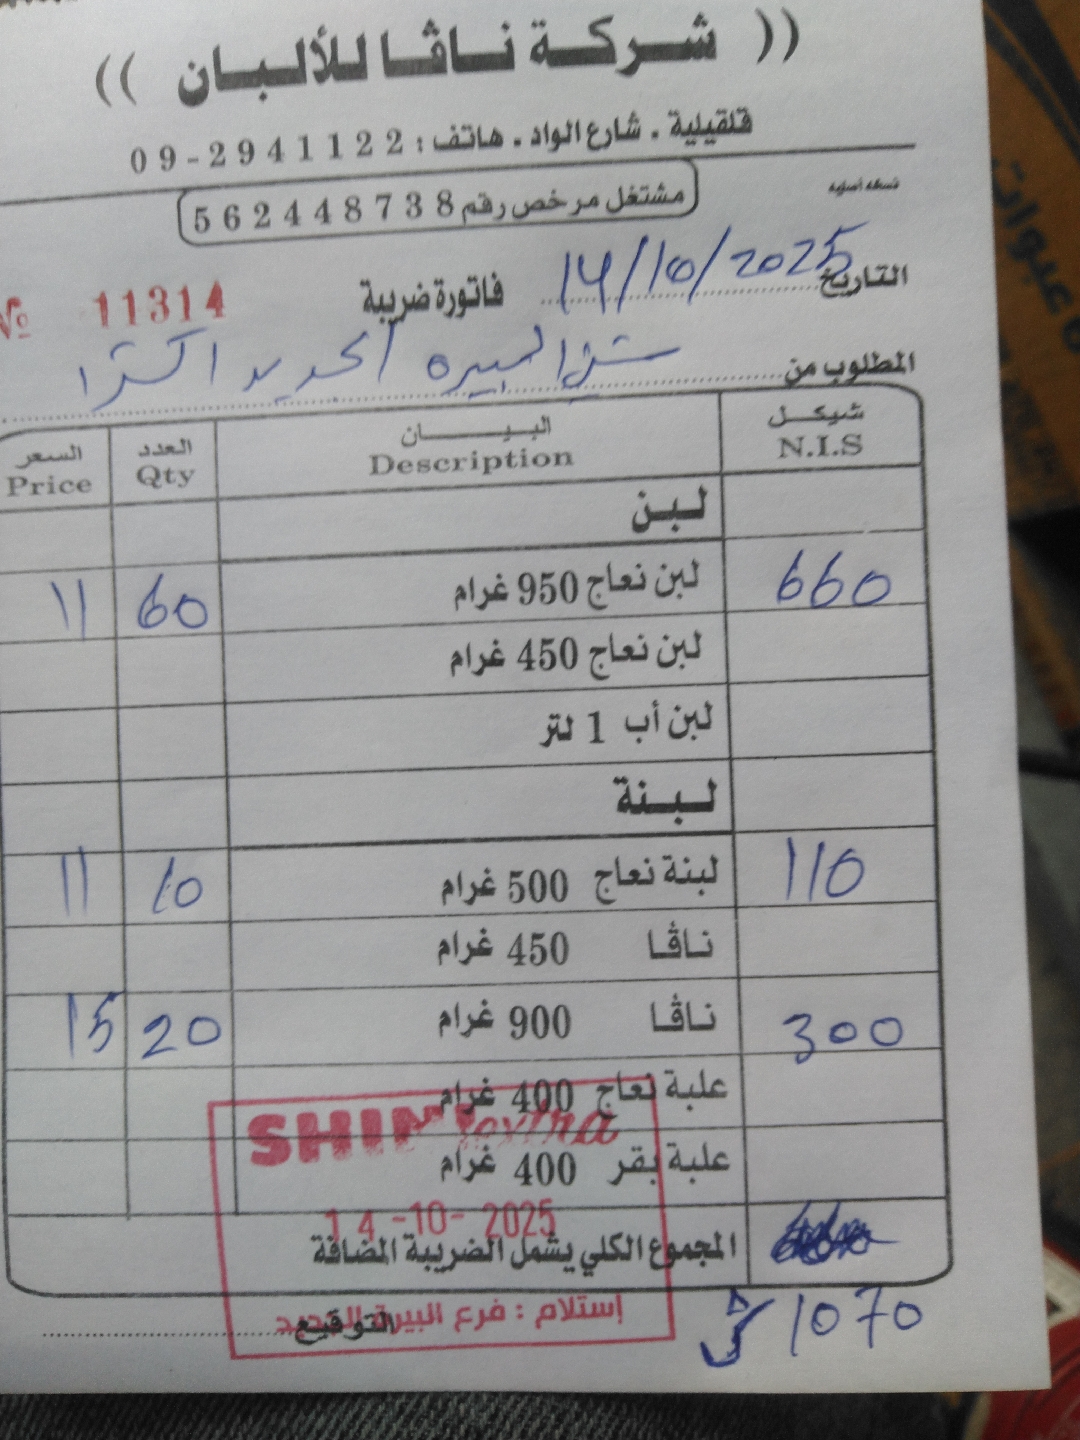 (( شركة ناڤا للألبان ))
قلقيلية . شارع الواد . هاتف : 09-2941122
نسخة أصلية
مشتغل مرخص رقم 562448738
التاريخ 14/10/2025
فاتورة ضريبة
№ 11314
المطلوب من شني البيره الجديد اكسترا
شيكل البيـــان العدد السعر
N.I.S Description Qty Price
لبن
660 لبن نعاج 950 غرام 60 11
لبن نعاج 450 غرام
لبن أب 1 لتر
لبنة
110 لبنة نعاج 500 غرام 10 11
ناڤا 450 غرام
300 ناڤا 900 غرام 20 15
علبة نعاج 400 غرام
علبة بقر 400 غرام
المجموع الكلي يشمل الضريبة المضافة
1070
التوقيع
SHINI extra
14-10-2025
إستلام : فرع البيرة الجديد
عبوات